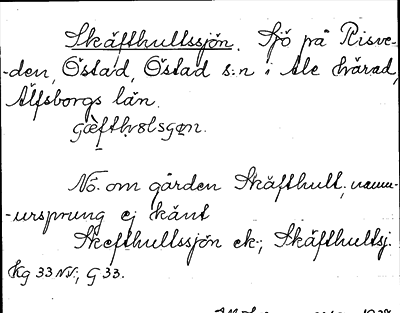 Skäfthultssjön. Sjö på Risve-
-den, Östad, Östad s:n i Ale härad,
Älfsborgs län.
Nö. om gården Skäfthult; namn-
-ursprung ej känt
Skefthultssjön ek.; Skäfthultsj.
Kg 33 NV.; G 33.